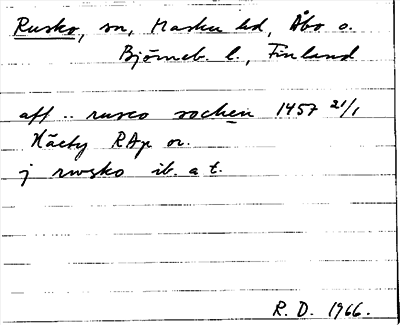 Rusko, sn, Masku hd, Åbo o.
Björneb. l., Finland
aff .. rusco sochen 1457 21/1
Näety RAp or.
j rwsko ib. a t.
R. D. 1966.